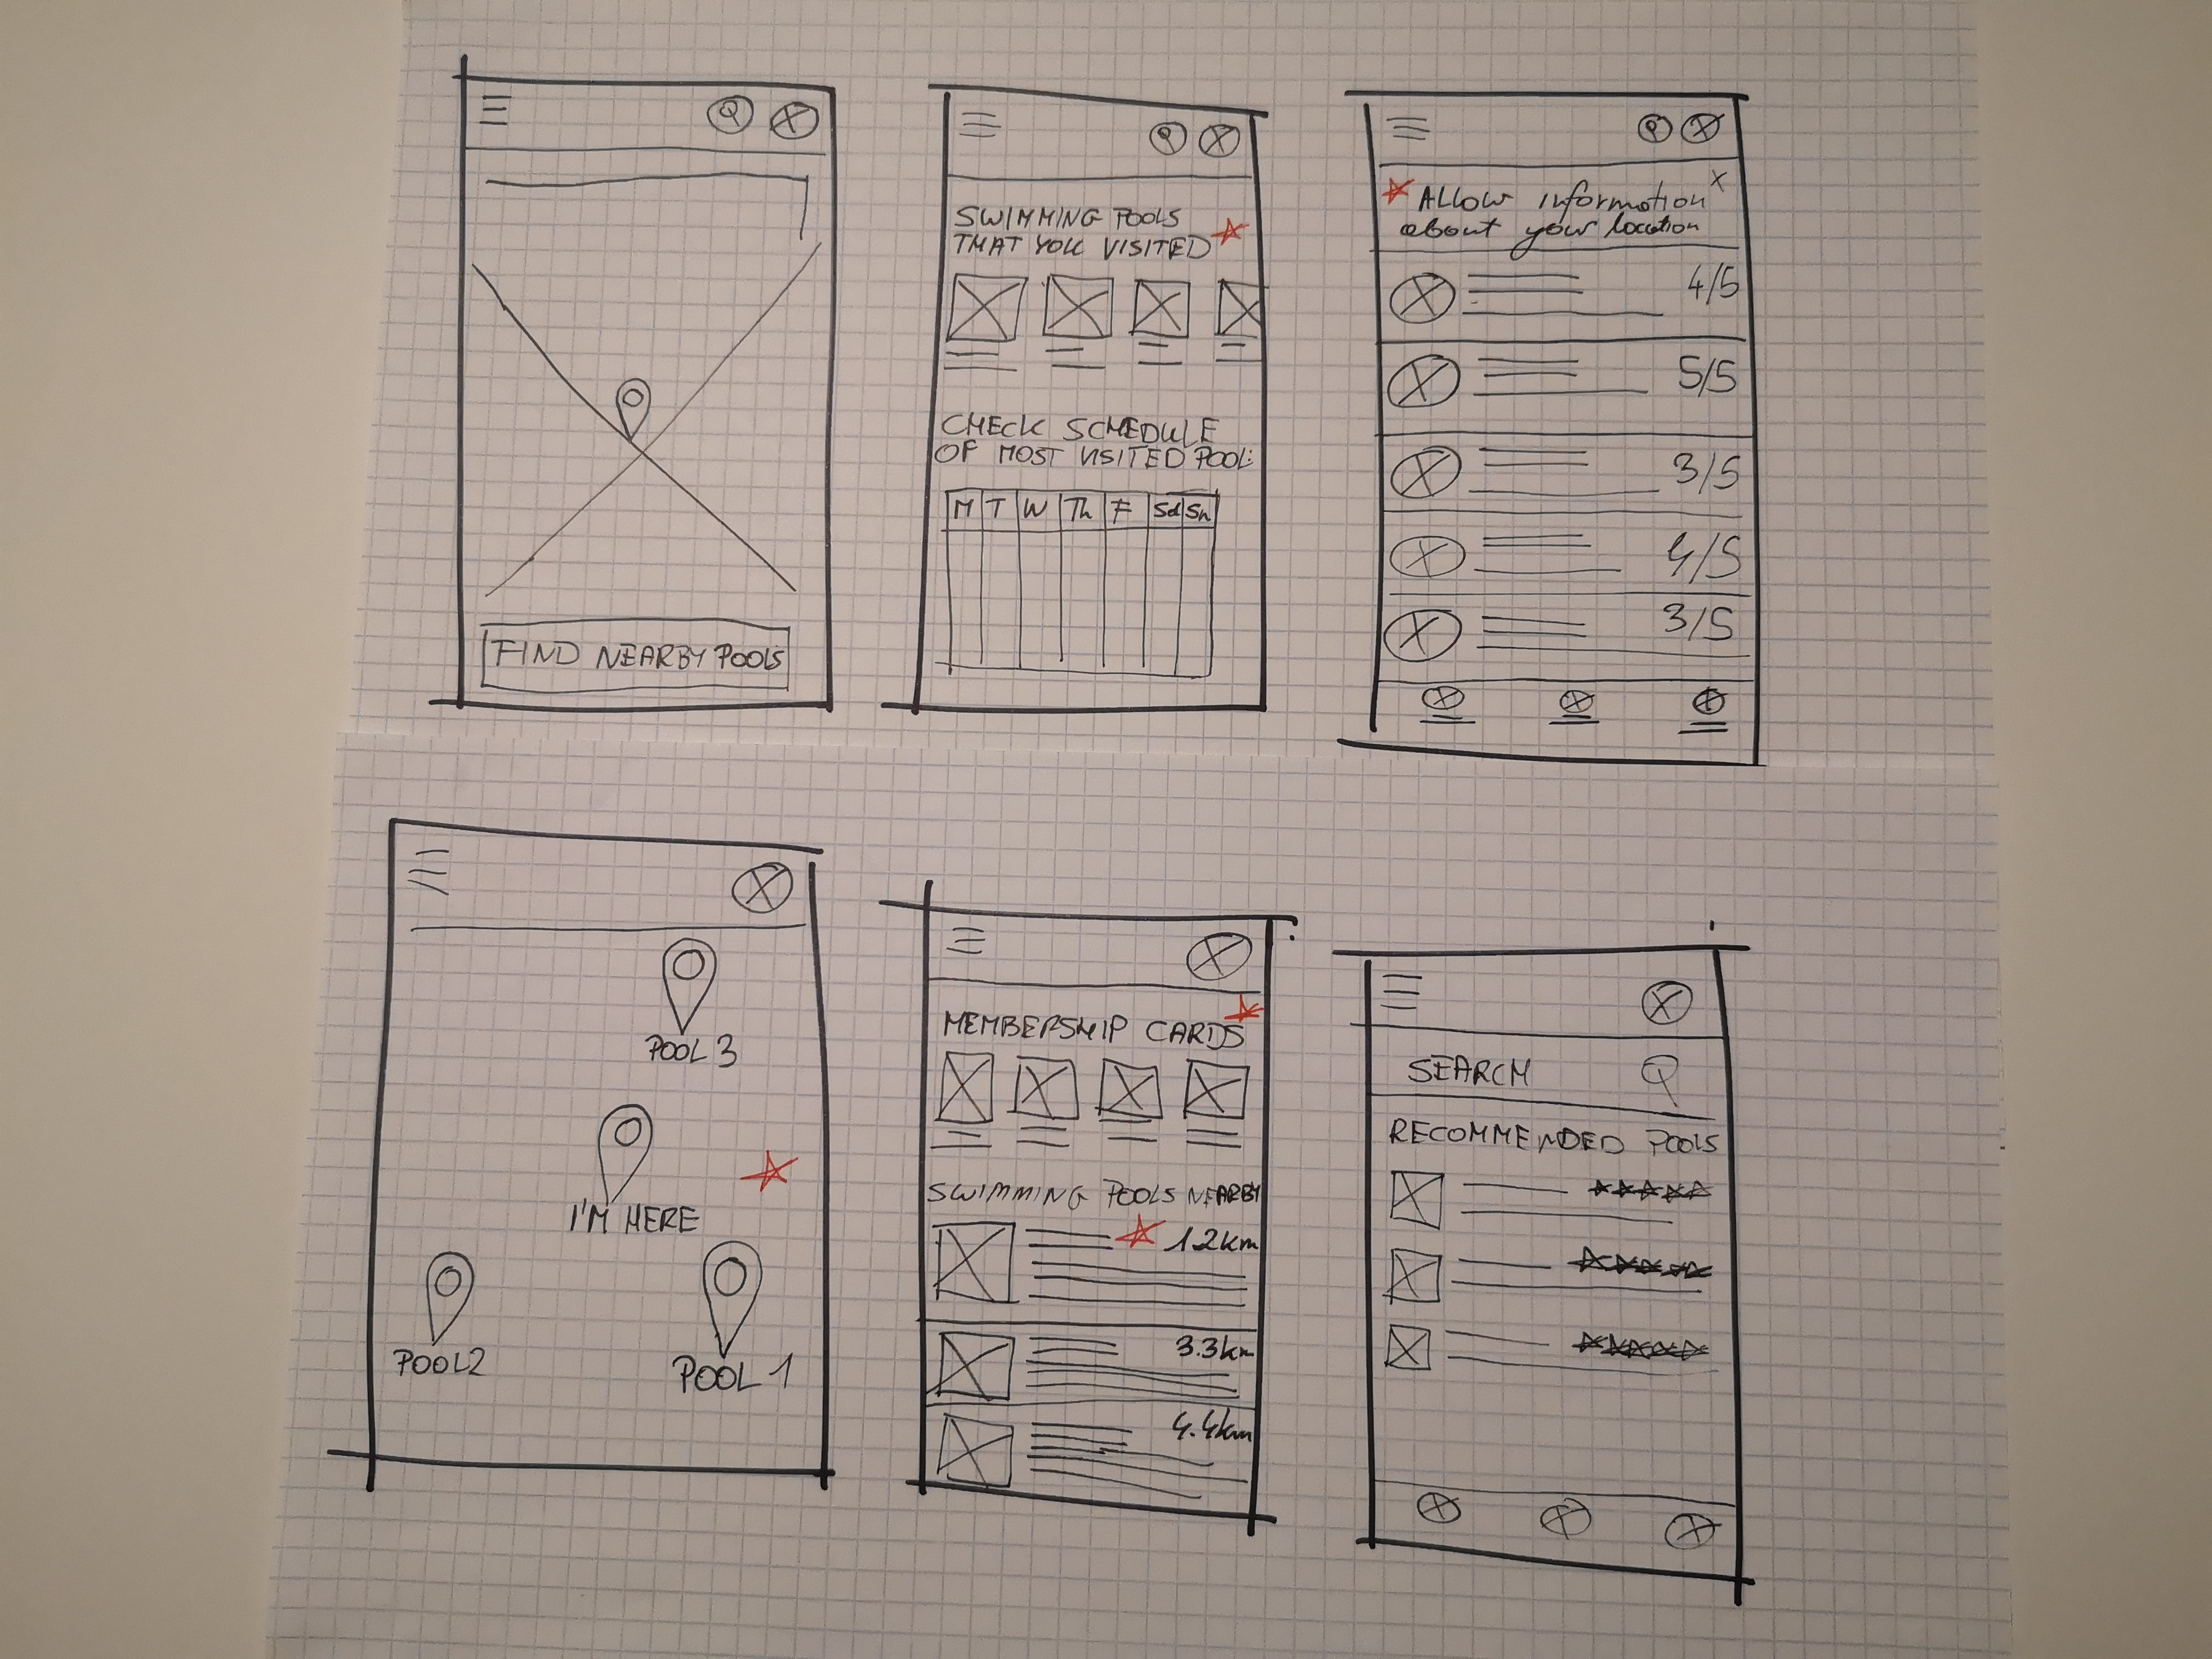 FIND NEARBY POOLS
SWIMMING POOLS
THAT YOU VISITED
CHECK SCHEDULE
OF MOST VISITED POOL:
M T W Th F Sa Su
x
ALLOW information
about your location
4/5
5/5
3/5
4/5
3/5
POOL 3
I'M HERE
POOL 2
POOL 1
MEMBERSHIP CARDS
SWIMMING POOLS NEARBY
1.2km
3.3km
4.4km
SEARCH
RECOMMENDED POOLS